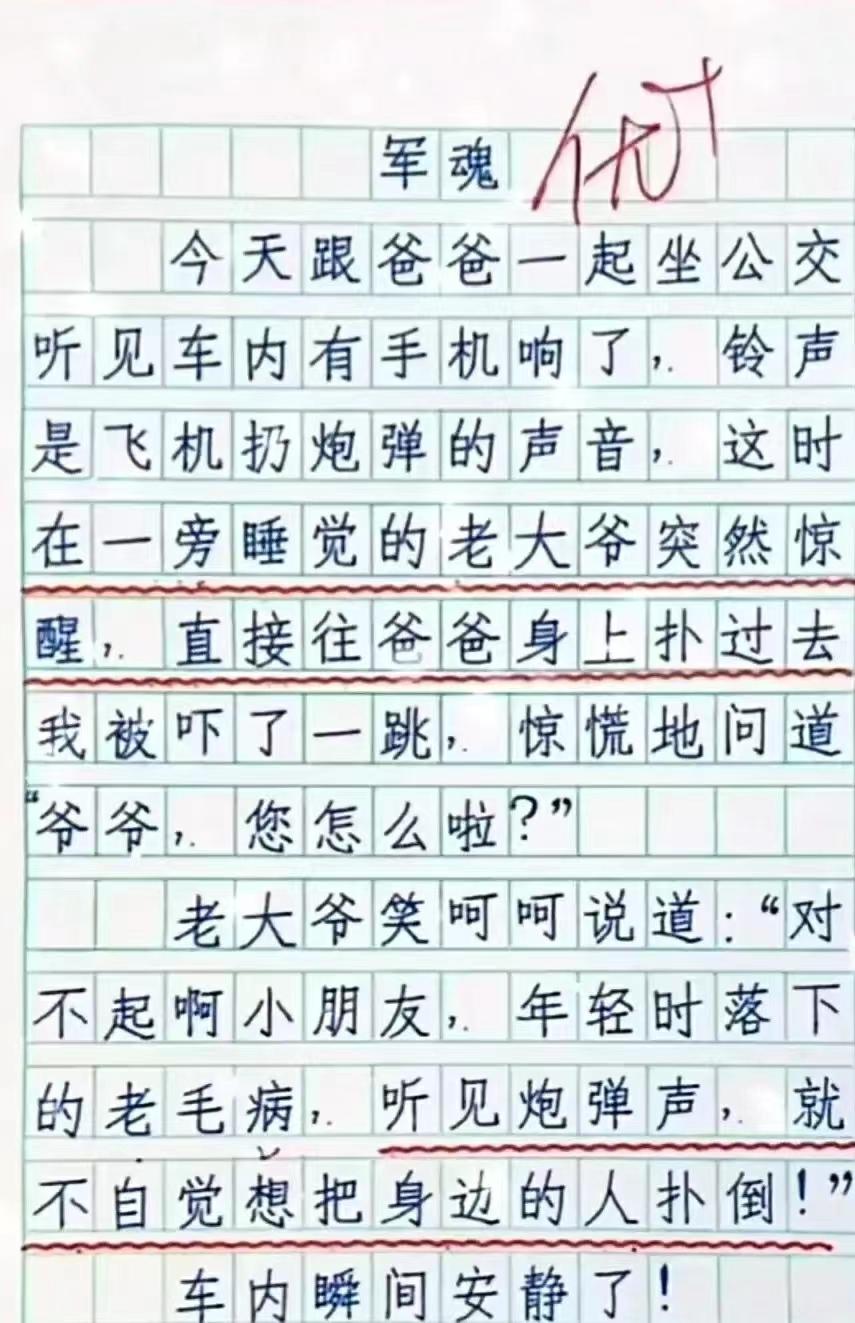 军魂 优+
今天跟爸爸一起坐公交
听见车内有手机响了，铃声
是飞机扔炮弹的声音，这时
在一旁睡觉的老大爷突然惊
醒，直接往爸爸身上扑过去
我被吓了一跳，惊慌地问道
“爷爷，您怎么啦？”
老大爷笑呵呵说道：“对
不起啊小朋友，年轻时落下
的老毛病，听见炮弹声，就
不自觉想把身边的人扑倒！”
车内瞬间安静了！